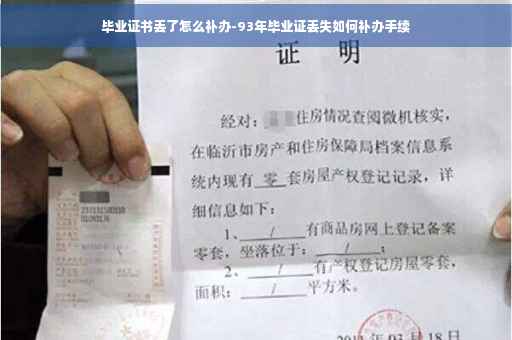 毕业证书丢了怎么补办-93年毕业证丢失如何补办手续
证 明
经对：住房情况查阅微机核实，
在临沂市房产和住房保障局档案信息系
统内现有 零 套房屋产权登记记录，详
细信息如下：
1、 / 有商品房网上登记备案
零套，坐落位于： / ；
2、 / 有产权登记房屋零套，
面积： / 平方米。
03 18 日